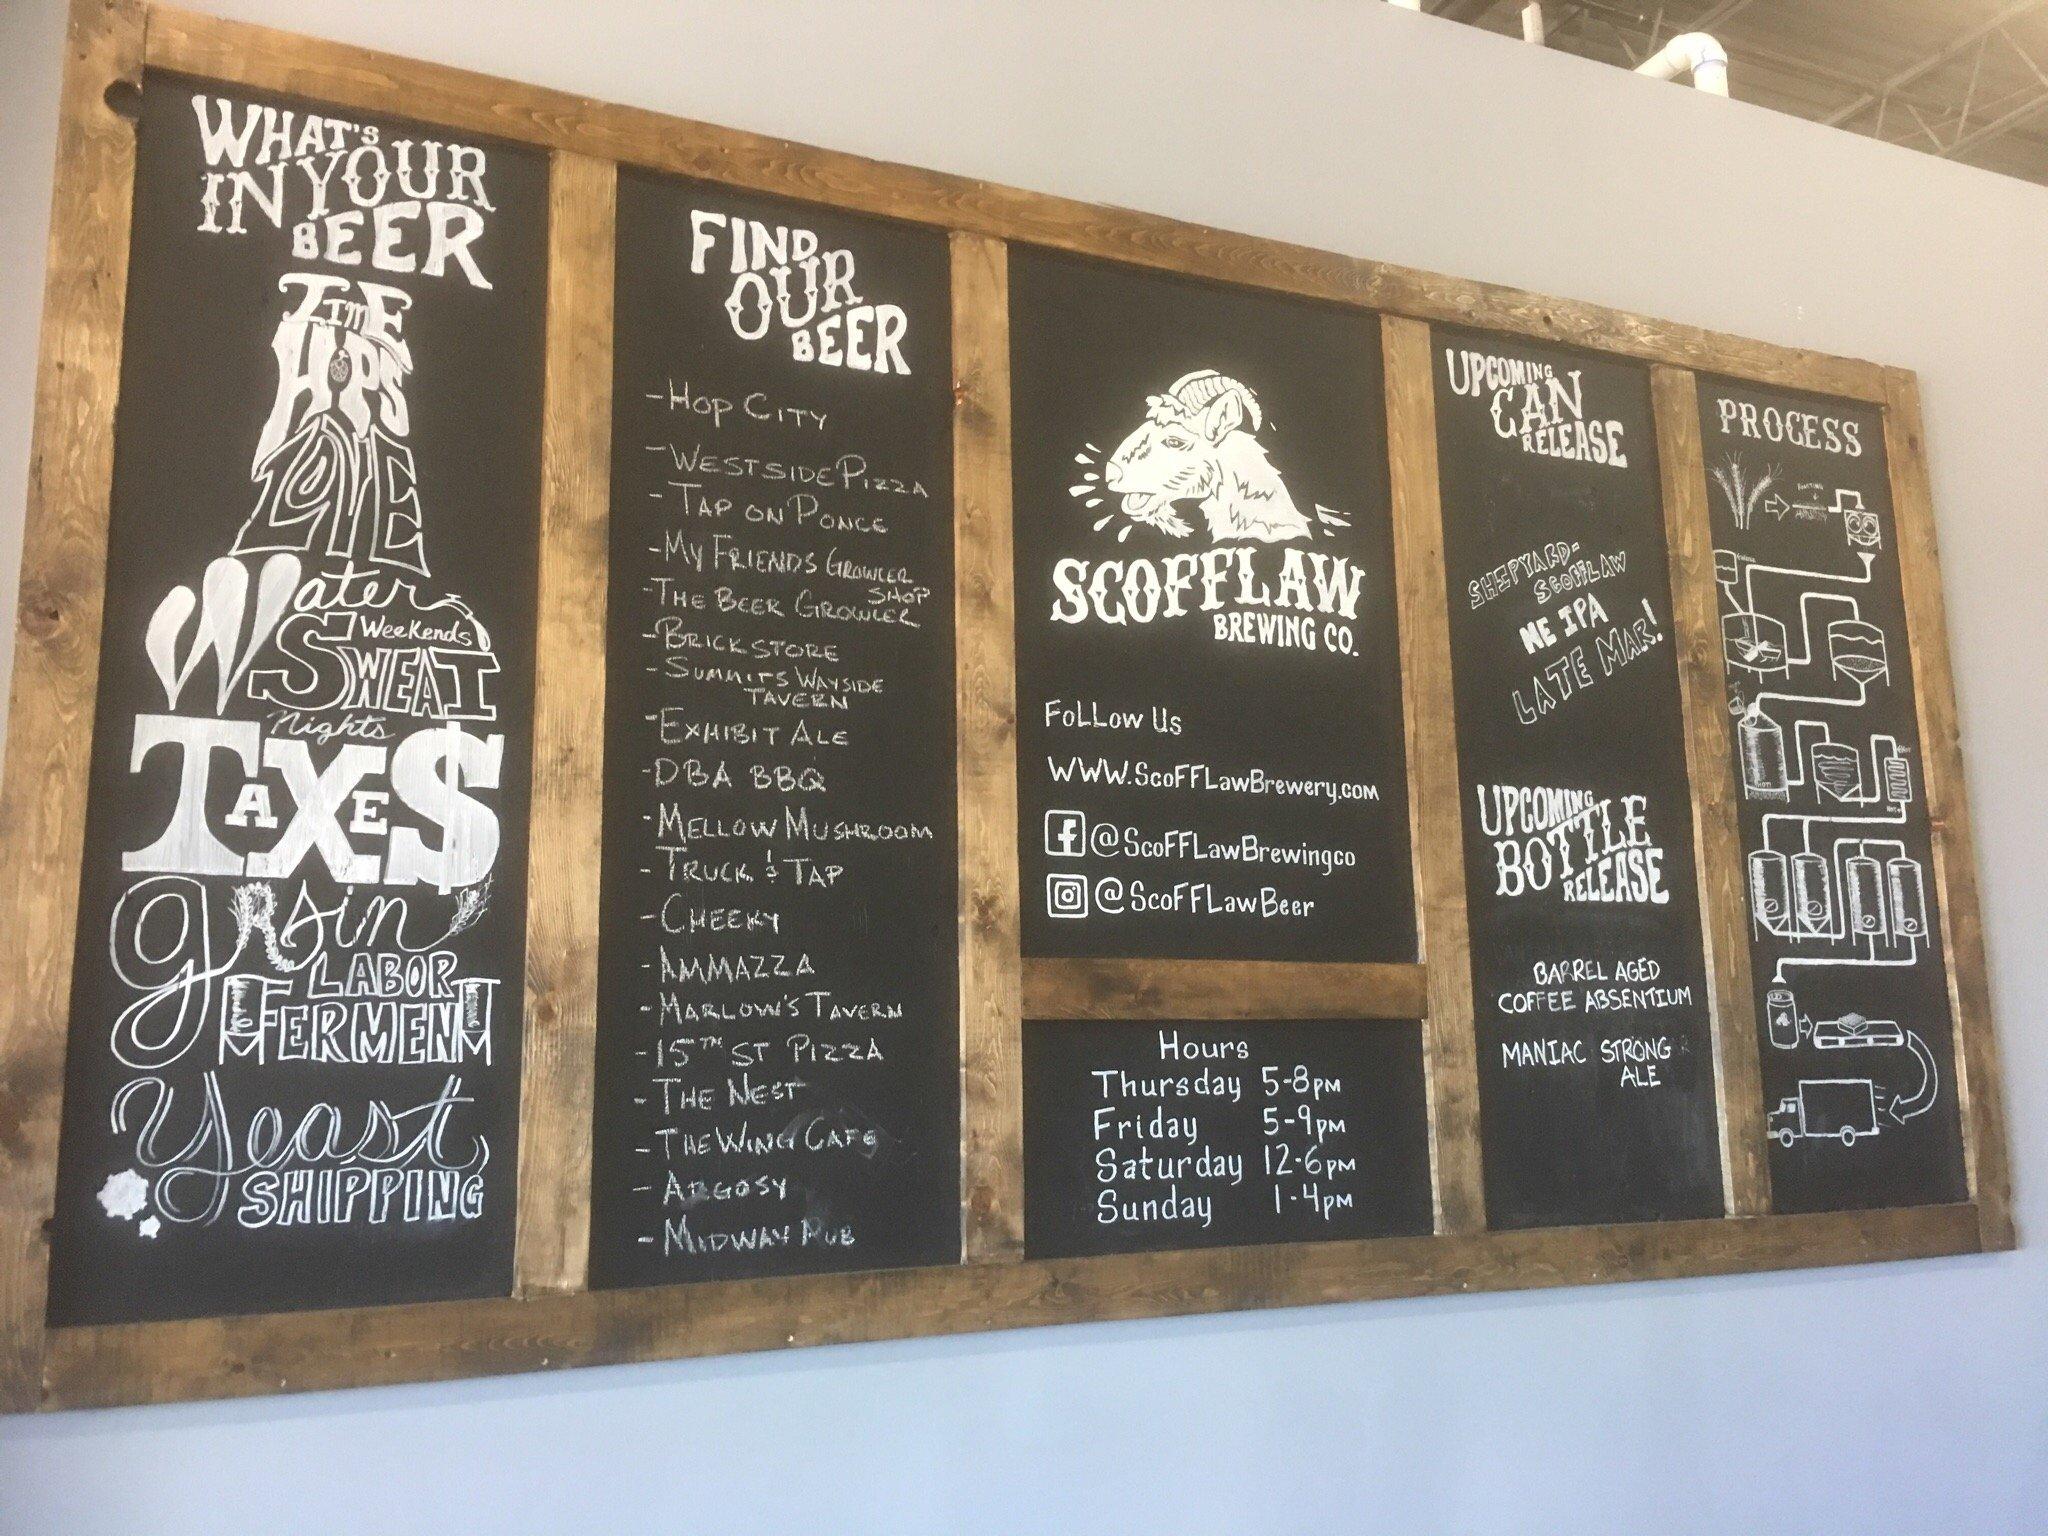 WHAT'S
IN YOUR
BEER
TIME
HOPS
LOVE
Water
Weekends
SWEAT
Nights
TAXES
grain
LABOR
FERMENT
Yeast
SHIPPING
FIND
OUR
BEER
- HOP CITY
- WESTSIDE PIZZA
- TAP ON PONCE
- MY FRIENDS GROWLER
SHOP
- THE BEER GROWLER
- BRICKSTORE
- SUMMITS WAYSIDE
TAVERN
- EXHIBIT ALE
- DBA BBQ
- MELLOW MUSHROOM
- TRUCK & TAP
- CHEEKY
- AMMAZZA
- MARLOW'S TAVERN
- 15TH ST PIZZA
- THE NEST
- THE WING CAFE
- ARGOSY
- MIDWAY PUB
SCOFFLAW
BREWING CO.
FOLLOW US
WWW.SCOFFLAWBREWERY.COM
@SCOFFLAWBREWINGCO
@SCOFFLAWBEER
Hours
Thursday 5-8PM
Friday 5-9PM
Saturday 12-6PM
Sunday 1-4PM
UPCOMING
CAN
RELEASE
SHIPYARD-
SCOFFLAW
NE IPA
LATE MAR!
UPCOMING
BOTTLE
RELEASE
BARREL AGED
COFFEE ABSENTIUM
MANIAC STRONG
ALE
PROCESS